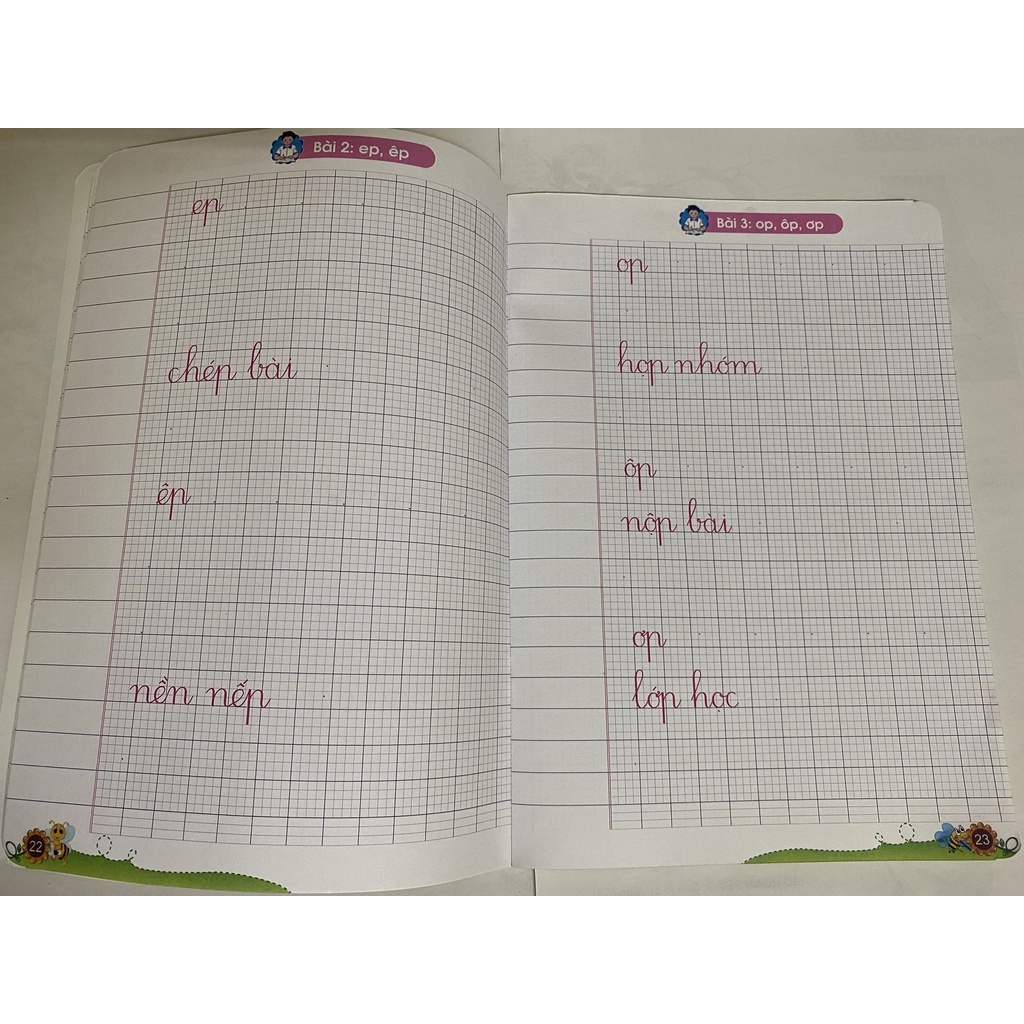 Bài 2: ep, êp
ep
chép bài
êp
nền nếp
22
Bài 3: op, ôp, ơp
op
họp nhóm
ôp
nộp bài
ơp
lớp học
23